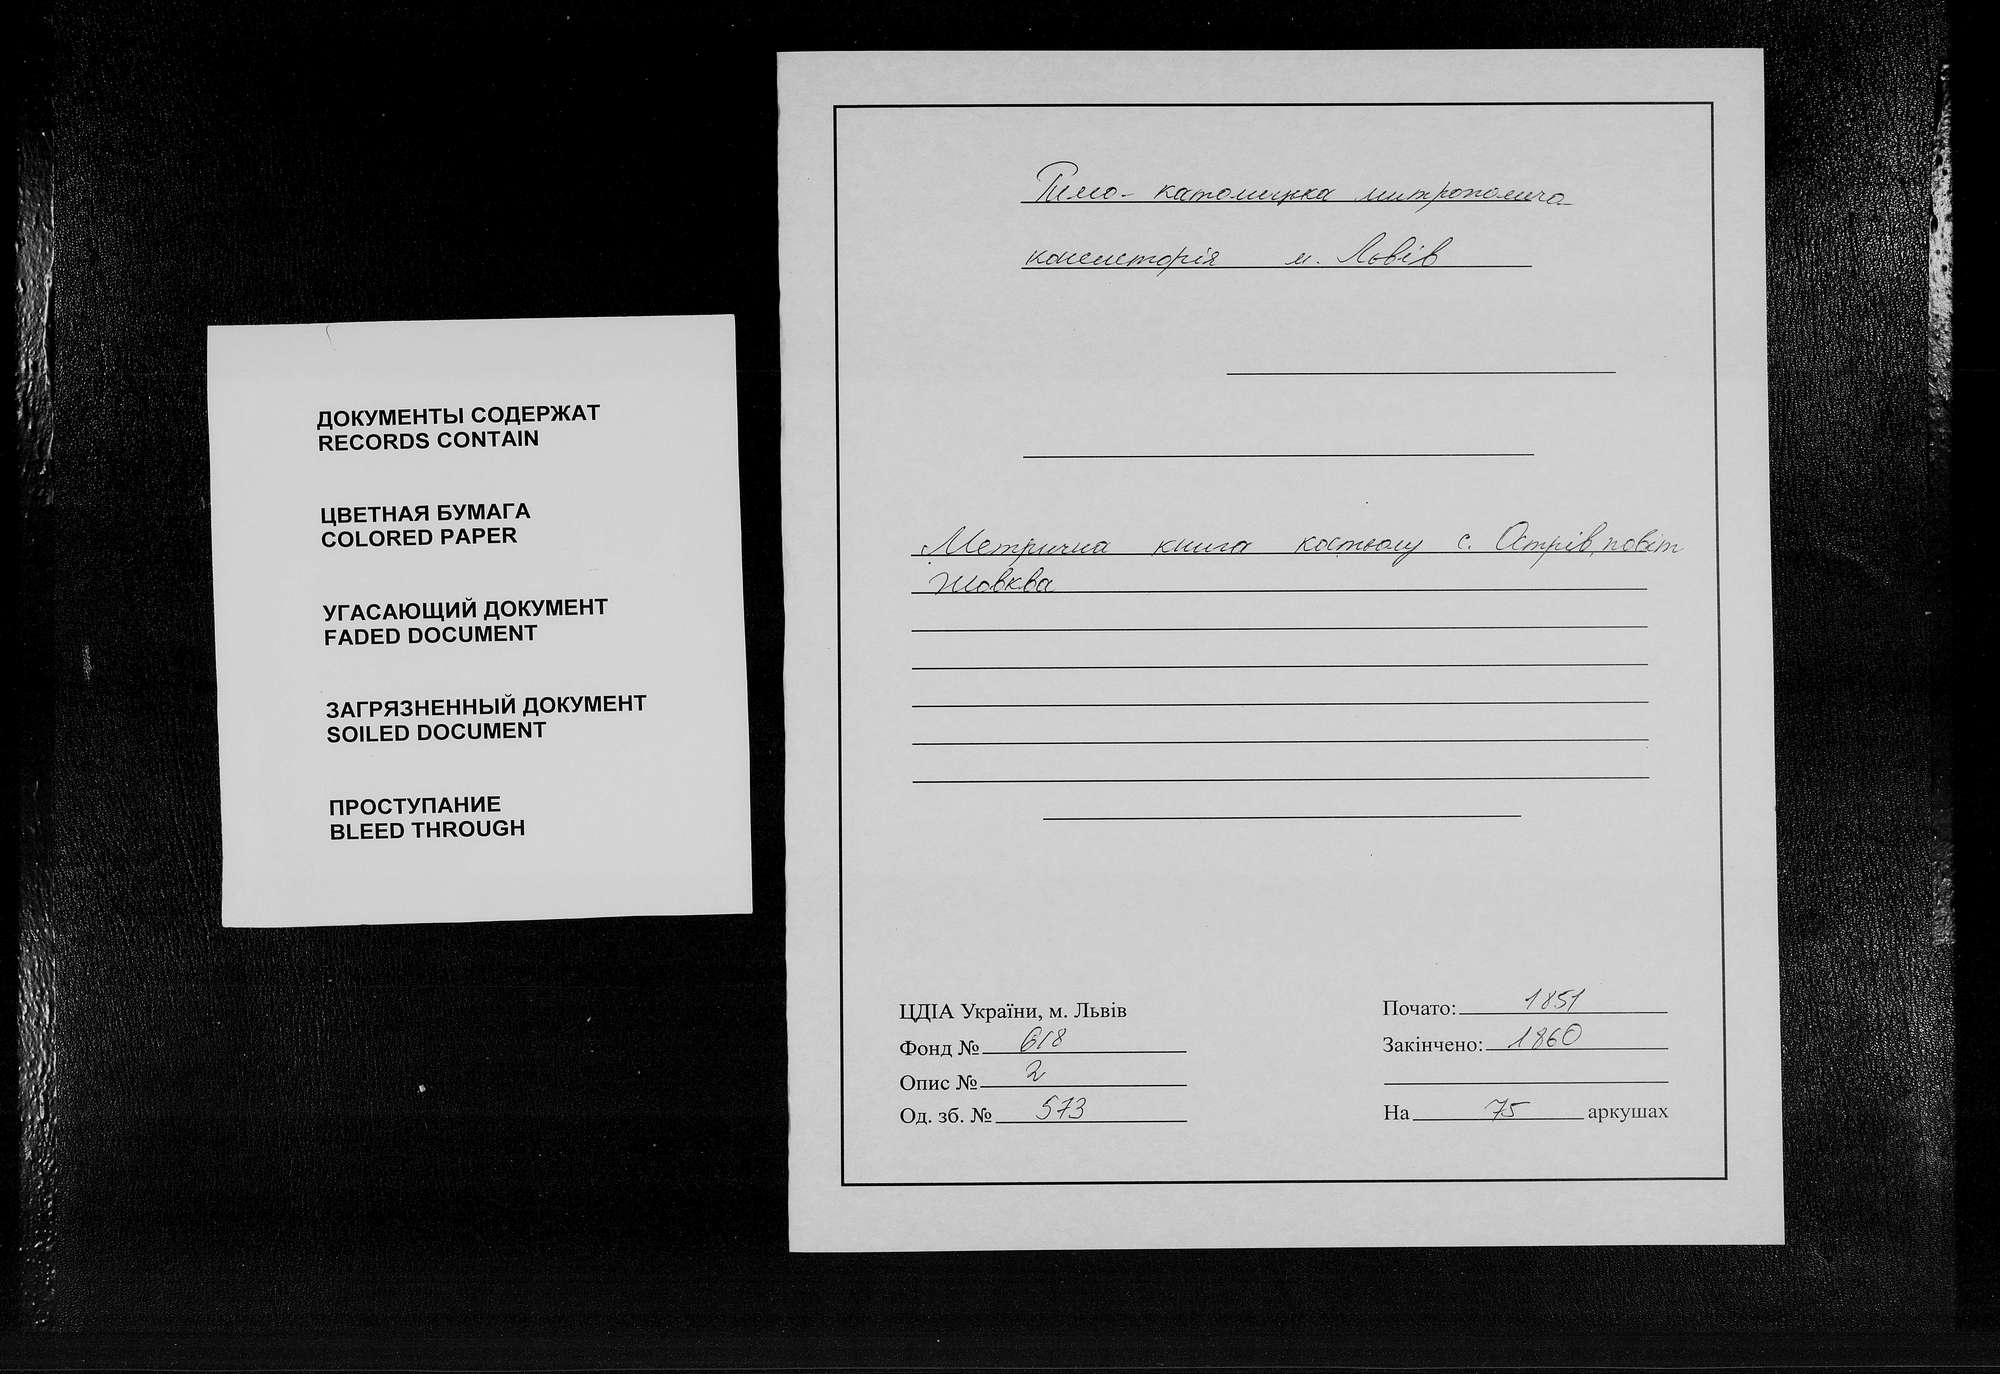 ДОКУМЕНТЫ СОДЕРЖАТ
RECORDS CONTAIN
ЦВЕТНАЯ БУМАГА
COLORED PAPER
УГАСАЮЩИЙ ДОКУМЕНТ
FADED DOCUMENT
ЗАГРЯЗНЕННЫЙ ДОКУМЕНТ
SOILED DOCUMENT
ПРОСТУПАНИЕ
BLEED THROUGH
Римо-католицька митрополича
консисторія м. Львів
Метрична книга костьолу с. Острів, повіт
Жовква
ЦДІА України, м. Львів
Фонд № 618
Опис № 2
Од. зб. № 573
Почато: 1851
Закінчено: 1860
На 75 аркушах